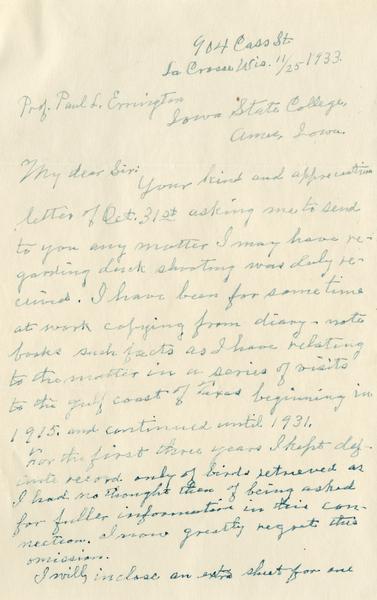 904 Cass St.
La Crosse, Wis. 11/25-1933.
Prof. Paul L. Errington
Iowa State College,
Ames, Iowa.
My dear Sir:
Your kind and appreciative
letter of Oct. 31st asking me to send
to you any matter I may have re-
garding duck shooting was duly re-
ceived. I have been for some time
at work copying from diary-note
books such facts as I have relating
to the matter in a series of visits
to the gulf coast of Texas beginning in
1915. and continued until 1931.
For the first three years I kept def-
inite record only of birds retrieved as
I had no thought then of being asked
for fuller information in this con-
nection. I now greatly regret this
omission.
I will inclose an extra sheet for one